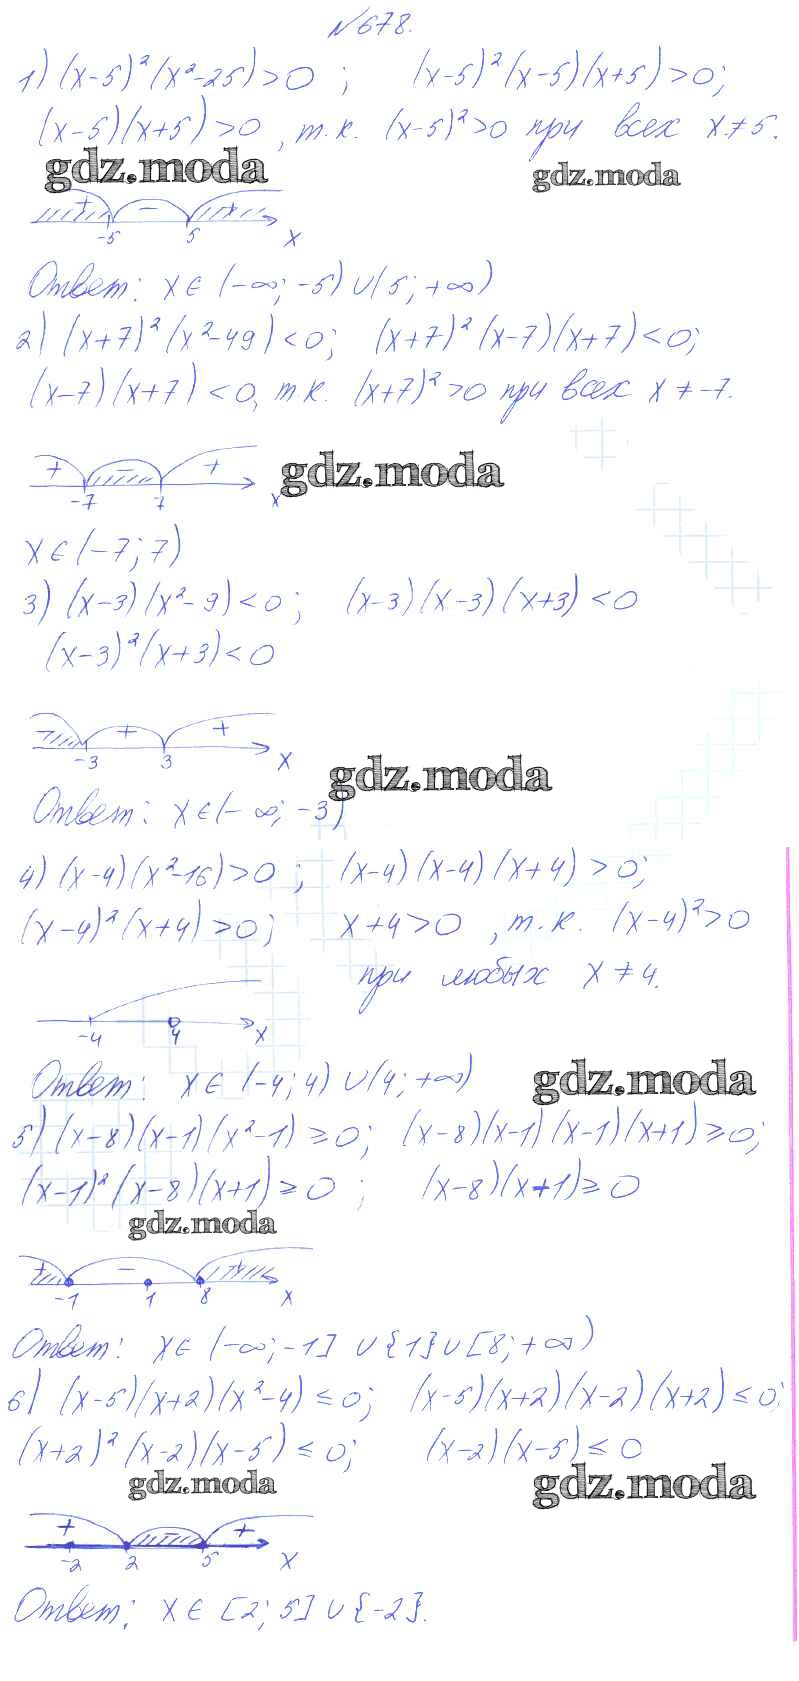 №678.
1) (x-5)²(x²-25)>0 ; (x-5)²(x-5)(x+5)>0;
(x-5)(x+5)>0, т.к. (x-5)²>0 при всех x≠5.
gdz.moda gdz.moda
+ - +
-5 5 x
Ответ: x∈(-∞; -5)∪(5; +∞)
2) (x+7)²(x²-49)<0; (x+7)²(x-7)(x+7)<0;
(x-7)(x+7)<0, т.к. (x+7)²>0 при всех x≠-7.
+ - +
gdz.moda
-7 7 x
x∈(-7; 7)
3) (x-3)(x²-9)<0; (x-3)(x-3)(x+3)<0
(x-3)²(x+3)<0
- + +
-3 3 x
gdz.moda
Ответ: x∈(-∞; -3)
4) (x-4)(x²-16)>0 ; (x-4)(x-4)(x+4)>0;
(x-4)²(x+4)>0; x+4>0, т.к. (x-4)²>0
при любых x≠4.
-4 4 x
Ответ: x∈(-4; 4)∪(4; +∞)
gdz.moda
5) (x-8)(x-1)(x²-1)≥0; (x-8)(x-1)(x-1)(x+1)≥0;
(x-1)²(x-8)(x+1)≥0 ; (x-8)(x+1)≥0
gdz.moda
+ - +
-1 1 8 x
Ответ: x∈(-∞; -1]∪{1}∪[8; +∞)
6) (x-5)(x+2)(x²-4)≤0; (x-5)(x+2)(x-2)(x+2)≤0;
(x+2)²(x-2)(x-5)≤0; (x-2)(x-5)≤0
gdz.moda gdz.moda
+ - +
-2 2 5 x
Ответ: x∈[2; 5]∪{-2}.